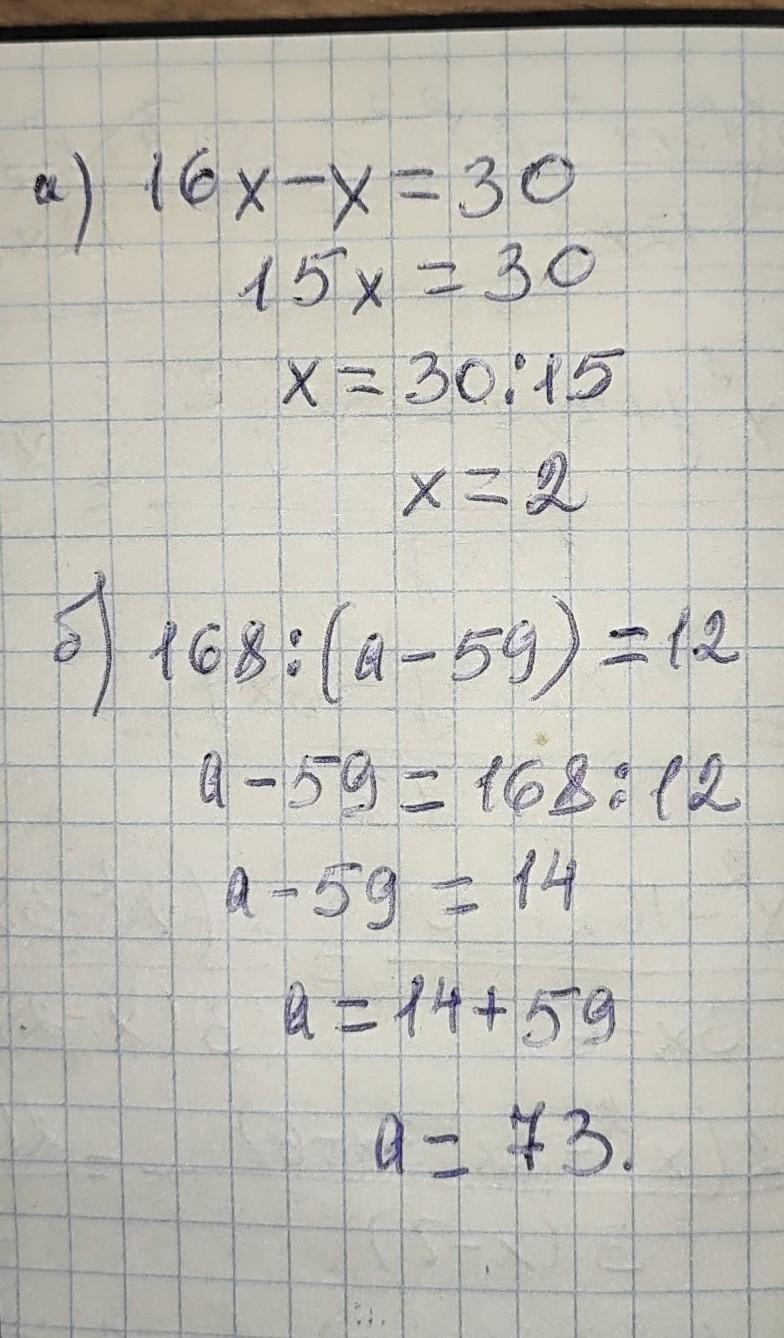 а) 16x-x=30
15x=30
x=30:15
x=2
б) 168:(a-59)=12
a-59=168:12
a-59=14
a=14+59
a=73.